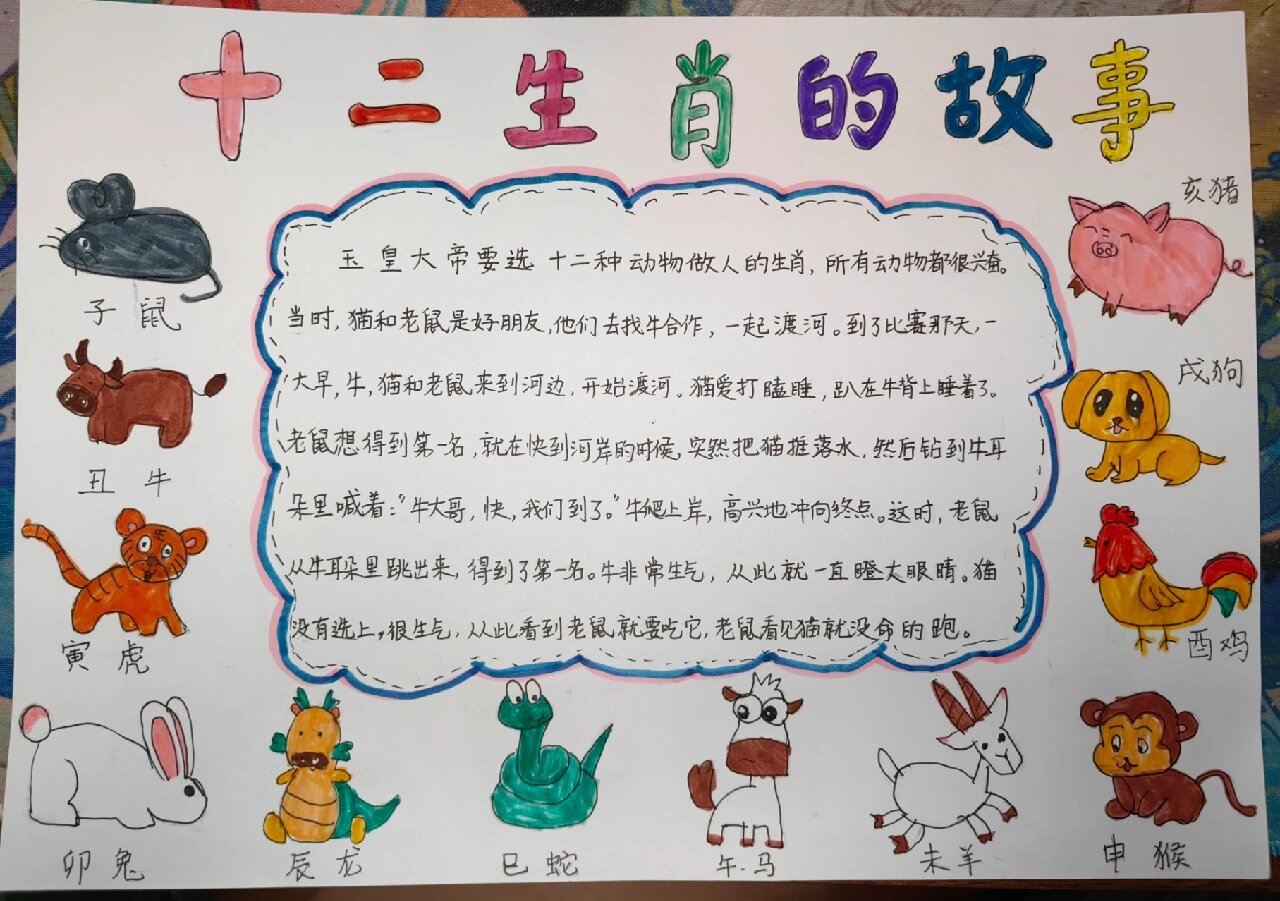 十二生肖的故事
玉皇大帝要选十二种动物做人的生肖,所有动物都很兴奋。
当时,猫和老鼠是好朋友,他们去找牛合作,一起渡河。到了比赛那天,一
大早,牛,猫和老鼠来到河边,开始渡河。猫爱打瞌睡,趴在牛背上睡着了。
老鼠想得到第一名,就在快到河岸的时候,突然把猫挺落水,然后钻到牛耳
朵里喊着:“牛大哥,快,我们到了。”牛爬上岸,高兴地冲向终点。这时,老鼠
从牛耳朵里跳出来,得到了第一名。牛非常生气,从此就一直瞪大眼睛。猫
没有选上,很生气,从此看到老鼠就要吃它,老鼠看见猫就没命的跑。
子鼠
丑牛
寅虎
卯兔
辰龙
巳蛇
午马
未羊
申猴
酉鸡
戌狗
亥猪